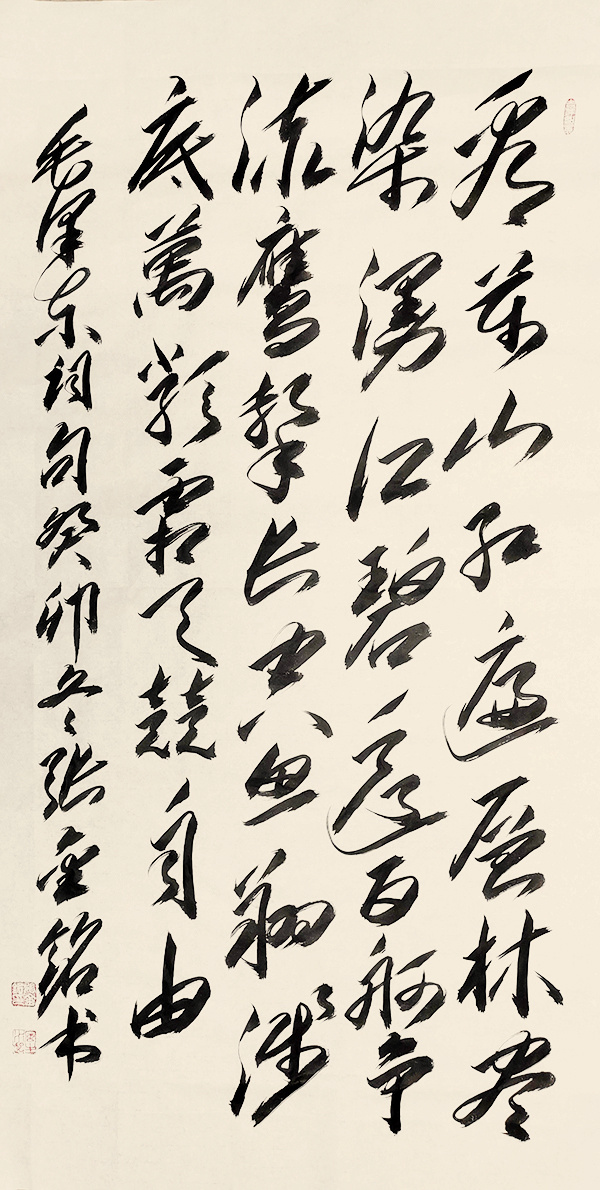 看萬山红遍层林尽
染漫江碧透百舸争
流鹰擊长空鱼翔浅
底萬類霜天競自由
毛泽东词句癸卯冬张金铭书